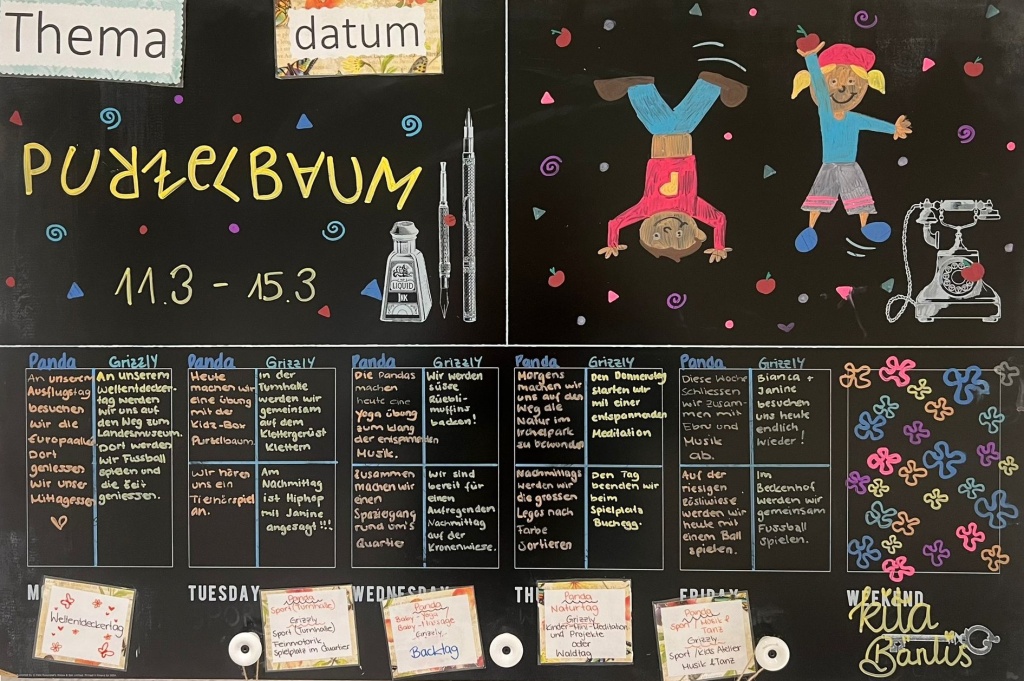 Thema
datum
PURZELBAUM
11.3 - 15.3
LIQUID
INK
Panda
An unserem
Ausflugstag
besuchen
wir die
Europaallee
Dort
geniessen
wir unser
Mittagessen
Grizzly
An unserem
Weltentdecker-
tag werden
wir uns auf
den Weg zum
Landesmuseum.
Dort werden
wir Fussball
spielen und
die Zeit
geniessen.
Panda
Heute
machen wir
eine Übung
mit der
Kidz-Box
Purzelbaum.
Wir hören
uns ein
Tierhörspiel
an.
Grizzly
In der
Turnhalle
werden wir
gemeinsam
auf dem
Klettergerüst
Klettern
Am
Nachmittag
ist Hiphop
mit Janine
angesagt!!!
Panda
Die Pandas
machen
heute eine
Yoga übung
zum klang
der entspannenden
Musik.
Zusammen
machen wir
einen
Spaziegang
rund um's
Quartier
Grizzly
Wir werden
süsse
Rüebli-
muffins
backen!
Wir sind
bereit für
einen
Aufregenden
Nachmittag
auf der
Kronenwiese.
Panda
Morgens
machen wir
uns auf den
Weg die
Natur im
Irchelpark
zu bewundern
Nachmittags
werden wir
die grossen
Legos nach
Farbe
Sortieren
Grizzly
Den Donnerstag
starten wir
mit einer
entspannenden
Meditation
Den Tag
beenden wir
beim
Spielplatz
Buchegg.
Panda
Diese Woche
schliessen
wir zusam-
men mit
Ebru und
Musik
ab.
Auf der
riesigen
Röslíwiese
werden wir
heute mit
einem Ball
spielen.
Grizzly
Bianca +
Janine
besuchen
uns heute
endlich
wieder!
Im
Beckenhof
werden wir
gemeinsam
Fussball
spielen.
M
TUESDAY
WEDNESDAY
TH
FRIDAY
WEEKEND
Weltentdeckertag
Panda
Sport (Turnhalle)
Grizzly
Sport (Turnhalle)
Feinmotorik,
Spielplatz im Quartier
Panda
Baby-Yoga
Baby-Massage
Grizzly
Backtag
Panda
Naturtag
Grizzly
Kinder-Yoga-Meditation
und Projekte
oder
Waldtag
Panda
Sport / Musik &
Tanz
Grizzly
Sport / Kids Atelier
Musik & Tanz
Kita
Bantis